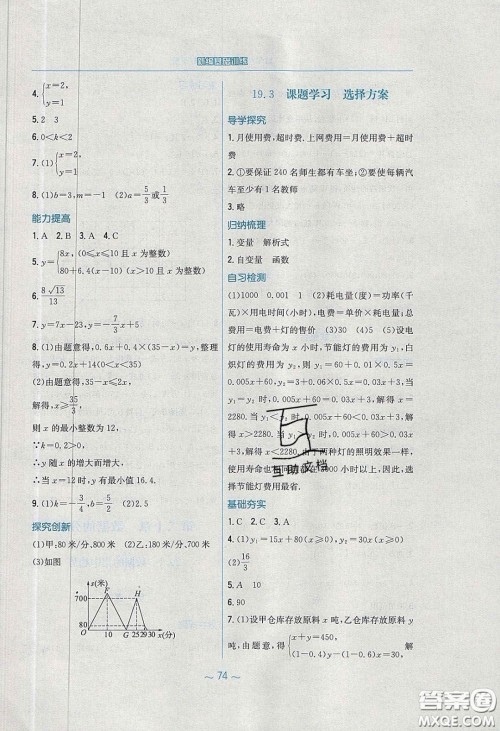 新编基础训练
4. {x=2, y=1
5. 2 3
6. 0<k<2
7. (1){x=2, y=1
8. (1)b=3,m=-1 (2)a=5/3或1/3
能力提高
1. A 2. B 3. A 4. C
5. y={8x,(0≤x≤10且x为整数) 80+6.4(x-10)(x>10且x为整数)
6. 8√13/13
7. y=7x-23,y=-7/3x+5
8. (1)由题意得,0.6x+0.4×(35-x)=y,整理
得,y=0.2x+14(0<x<35)
(2)由题意得,35-x≤2x,
解得,x≥35/3
则x的最小整数为12,
∵k=0.2>0,
∴y随x的增大而增大,
∴当x=12时,y有最小值16.4.
9. (1)k=-3/4,b=5/2 (2)2.5
探究创新
(1)甲:80米/分,800米 (2)乙:180米/分、700米
(3)如图
s(米)
F H
700
80
O G 25 29 30 x(分)
19.3 课题学习 选择方案
导学探究
1. 月使用费,超时费.上网费用=月使用费+超时
费
2. ①要保证240名师生都有车坐;②要使每辆汽
车至少有1名教师
3. 略
归纳梳理
1. 变量 解析式
2. 自变量 函数
自习检测
(1)1000 0.001 1 (2)耗电量(度)=功率(千
瓦)×用电时间(小时),电费=单价×耗电量,
总费用=电费+灯的售价 (3)30 (4)5 (5)设
灯的使用寿命为x小时,节能灯的费用为y₁,白
炽灯的费用为y₂,则有:y₁=60+0.01×0.5x=
0.005x+60,y₂=3+0.06×0.5x=0.03x+3,当
y₁=y₂时,0.005x+60=0.03x+3,解得,x=
2280.当y₁<y₂时,0.005x+60<0.03x+3,解得,
x>2280.当y₁>y₂时,0.005x+60>0.03x+3,
解得,x<2280.由于两种灯的照明效果一样,
使用寿命也相同
小时以上,因此,选
择节能灯费用最省.
基础夯实
1. C 2. C 3. A
4. (1)y₁=15x+80(x≥0) y₂=30x(x≥0)
(2)16/3
5. A 10
6. 90
7. (1)设甲仓库存放原料x吨,乙仓库存放原料y
吨,由题意,得{x+y=450, (1-0.6)y-(1-0.4)x=30. 解
互助文档
~ 74 ~
答案圈
MXQE.COM